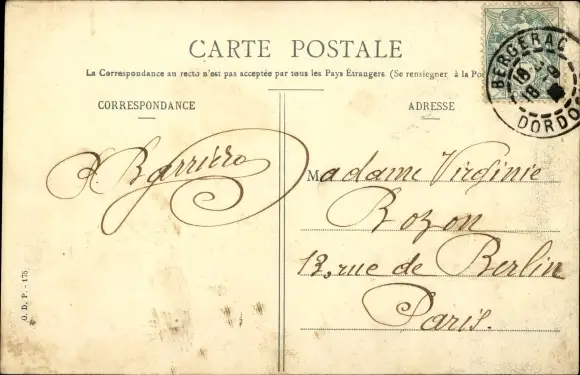 CARTE POSTALE
La Correspondance au recto n'est pas acceptée par tous les Pays Étrangers. (Se renseigner à la Po
CORRESPONDANCE
ADRESSE
BERGERAC
18
DORDO
Madame Virginie
Bozon
13, rue de Berlin
Paris.
O. D. P. - 175